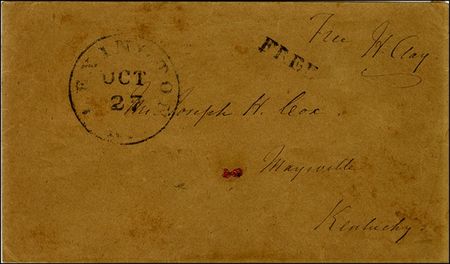 LEXINGTON
OCT
27
Ky.
FREE
Free H. Clay
Mr. Joseph H. Cox
Maysville
Kentucky